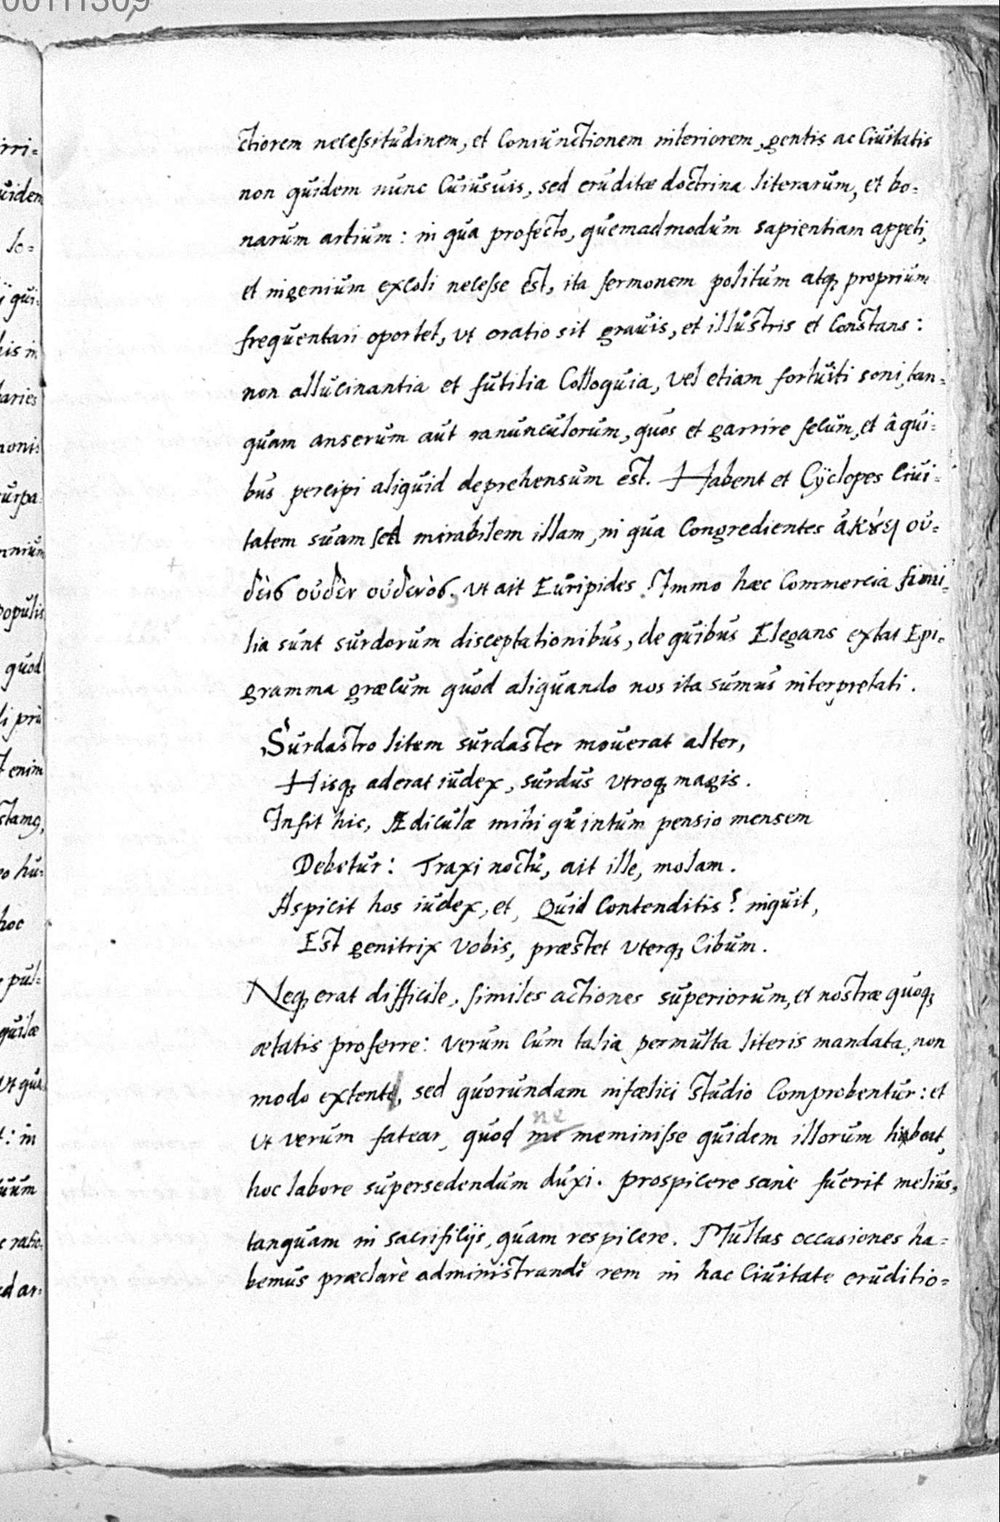 00111309
ctiorem necessitudinem, et coniunctionem interiorem, gentis ac Ciuitatis
non quidem nunc Cuiusuis, sed eruditæ doctrina literarum, et bo-
narum artium: in qua profecto, quemadmodum sapientiam appeti,
et ingenium excoli necesse est, ita sermonem politum atq; proprium
frequentari oportet, vt oratio sit grauis, et illustris et Constans:
non allucinantia et futilia Colloquia, vel etiam fortuiti soni, tan-
quam anserum aut ranunculorum, quos et garrire secum, et â qui-
bus percipi aliquid deprehensum est. Habent et Cyclopes Ciui-
tatem suam sed mirabilem illam, in qua Congredientes ἀκȣ́ει οὐ-
δεὶς οὐδὲν οὐδενὸς, vt ait Euripides. Immo hæc Commercia simi-
lia sunt surdorum disceptationibus, de quibus Elegans extat Epi-
gramma græcum quod aliquando nos ita sumus interpretati.
Surdastro litem surdaster mouerat alter,
Hisq; aderat iudex, surdus vtroq; magis.
Infit hic, Ædiculæ mihi quintum pensio mensem
Debetur: Traxi noctu, ait ille, molam.
Aspicit hos iudex, et, Quid Contenditis? inquit,
Est genitrix vobis, præstet vterq; Cibum.
Neq; erat difficile, similes actiones superiorum, et nostræ quoq;
ætatis proferre: verum Cum talia permulta literis mandata non
modo extent, sed quorundam infælici studio Comprobentur: et
vt verum fatear, quod ne meminisse quidem illorum libeat,
hoc labore supersedendum duxi. prospicere sanè fuerit melius,
tanquam in sacrificijs, quam respicere. Multas occasiones ha-
bemus præclarè administrandi rem in hac Ciuitate eruditio-